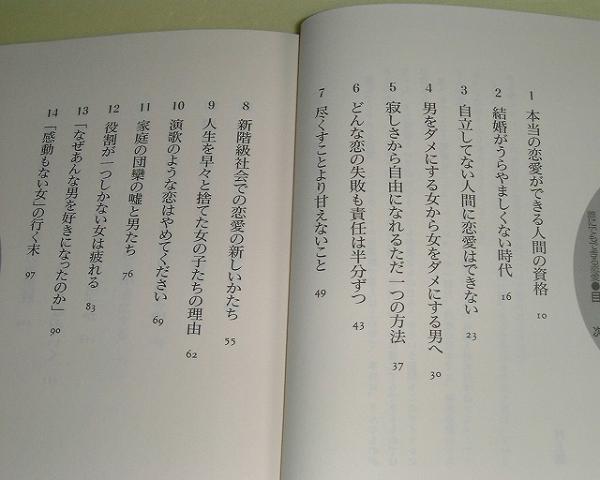 目次
1 本当の恋愛ができる人間の資格 10
2 結婚がうらやましくない時代 16
3 自立してない人間に恋愛はできない 23
4 男をダメにする女から女をダメにする男へ 30
5 寂しさから自由になれるただ一つの方法 37
6 どんな恋の失敗も責任は半分ずつ 43
7 尽くすことより甘えないこと 49
8 新階級社会での恋愛の新しいかたち 55
9 人生を早々と捨てた女の子たちの理由 62
10 演歌のような恋はやめてください 69
11 家庭の団欒の嘘と男たち 76
12 役割が一つしかない女は疲れる 83
13 「なぜあんな男を好きになったのか」 90
14 「感動もない女」の行く末 97